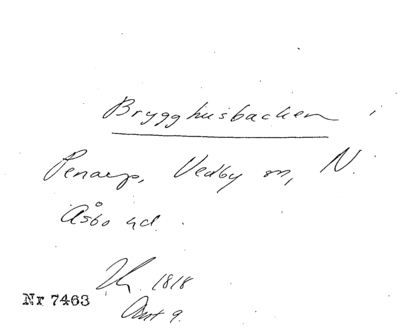 Brygghusbacken i
Penarp, Vedby sn, N.
Åsbo hd.
1818
Nr 7463
9.